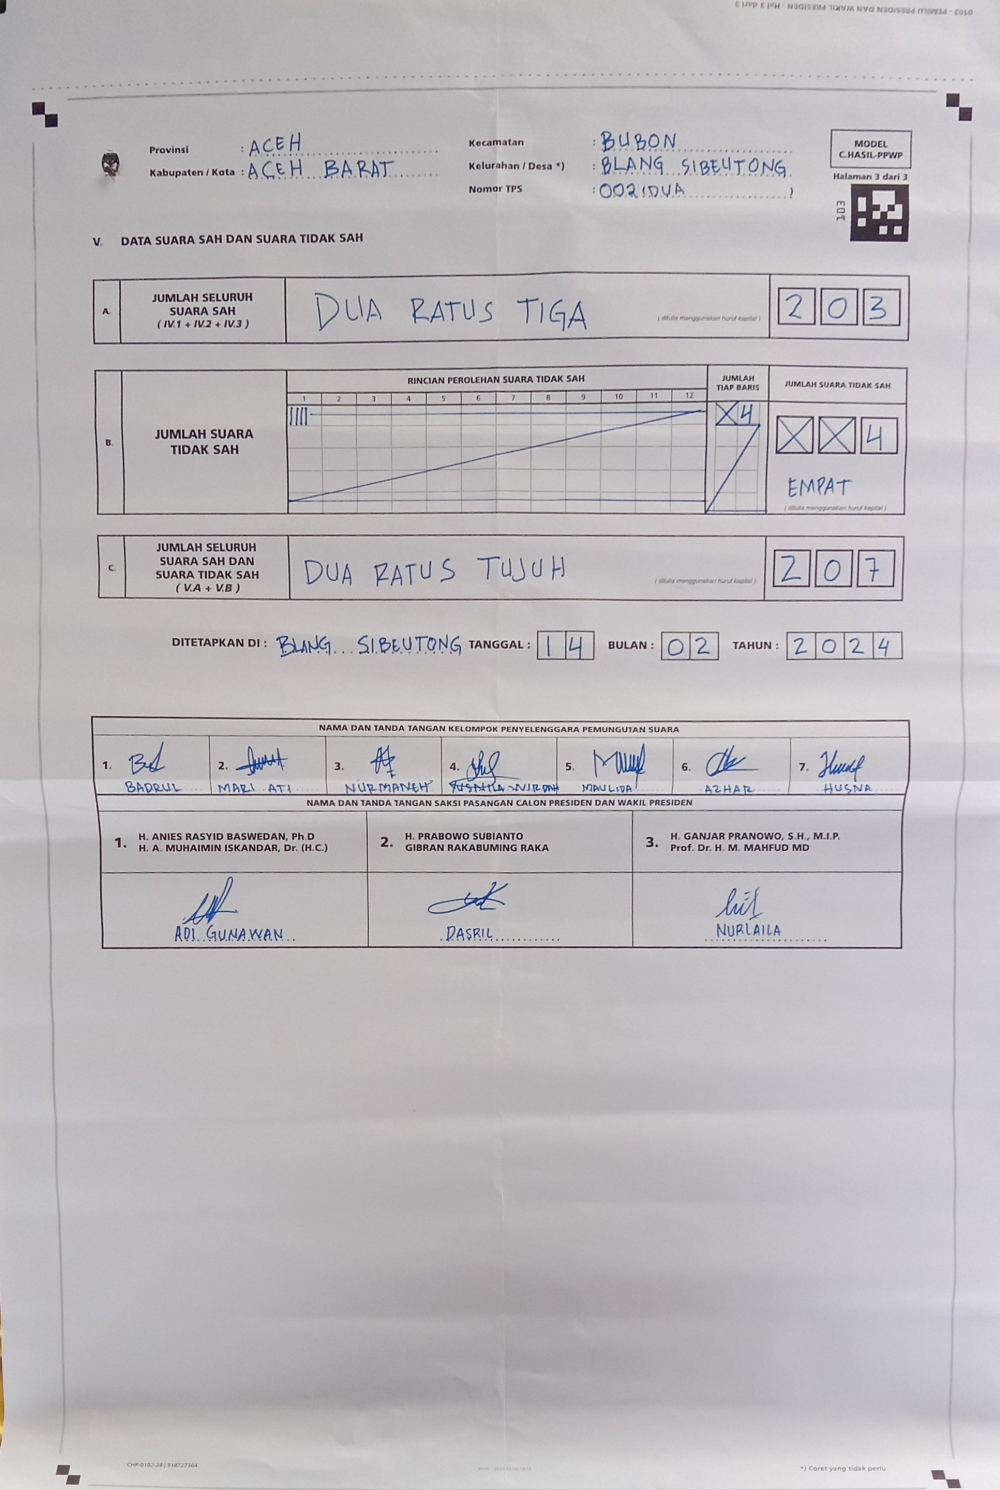 0103 - PEMILU PRESIDEN DAN WAKIL PRESIDEN - Hal 3 dari 3
Provinsi : ACEH
Kabupaten / Kota : ACEH BARAT
Kecamatan : BUBON
Kelurahan / Desa *) : BLANG SIBEUTONG
Nomor TPS : 002 (DUA )
MODEL
C.HASIL-PPWP
Halaman 3 dari 3
103
V. DATA SUARA SAH DAN SUARA TIDAK SAH
A. JUMLAH SELURUH SUARA SAH ( IV.1 + IV.2 + IV.3 )
DUA RATUS TIGA
( ditulis menggunakan huruf kapital )
2 0 3
B. JUMLAH SUARA TIDAK SAH
RINCIAN PEROLEHAN SUARA TIDAK SAH
1 2 3 4 5 6 7 8 9 10 11 12
JUMLAH TIAP BARIS
X4
JUMLAH SUARA TIDAK SAH
X X 4
EMPAT
( ditulis menggunakan huruf kapital )
C. JUMLAH SELURUH SUARA SAH DAN SUARA TIDAK SAH ( V.A + V.B )
DUA RATUS TUJUH
( ditulis menggunakan huruf kapital )
2 0 7
DITETAPKAN DI : BLANG SIBEUTONG TANGGAL : 14 BULAN : 02 TAHUN : 2024
NAMA DAN TANDA TANGAN KELOMPOK PENYELENGGARA PEMUNGUTAN SUARA
1. 2. 3. 4. 5. 6. 7.
BADRUL MARI ATI NURMANEH MAULIDA AZHAR HUSNA
NAMA DAN TANDA TANGAN SAKSI PASANGAN CALON PRESIDEN DAN WAKIL PRESIDEN
1. H. ANIES RASYID BASWEDAN, Ph.D
H. A. MUHAIMIN ISKANDAR, Dr. (H.C.)
2. H. PRABOWO SUBIANTO
GIBRAN RAKABUMING RAKA
3. H. GANJAR PRANOWO, S.H., M.I.P.
Prof. Dr. H. M. MAHFUD MD
ADI GUNAWAN
DASRIL
NURLAILA
CHP-0102-24 | 918727364
*) Coret yang tidak perlu